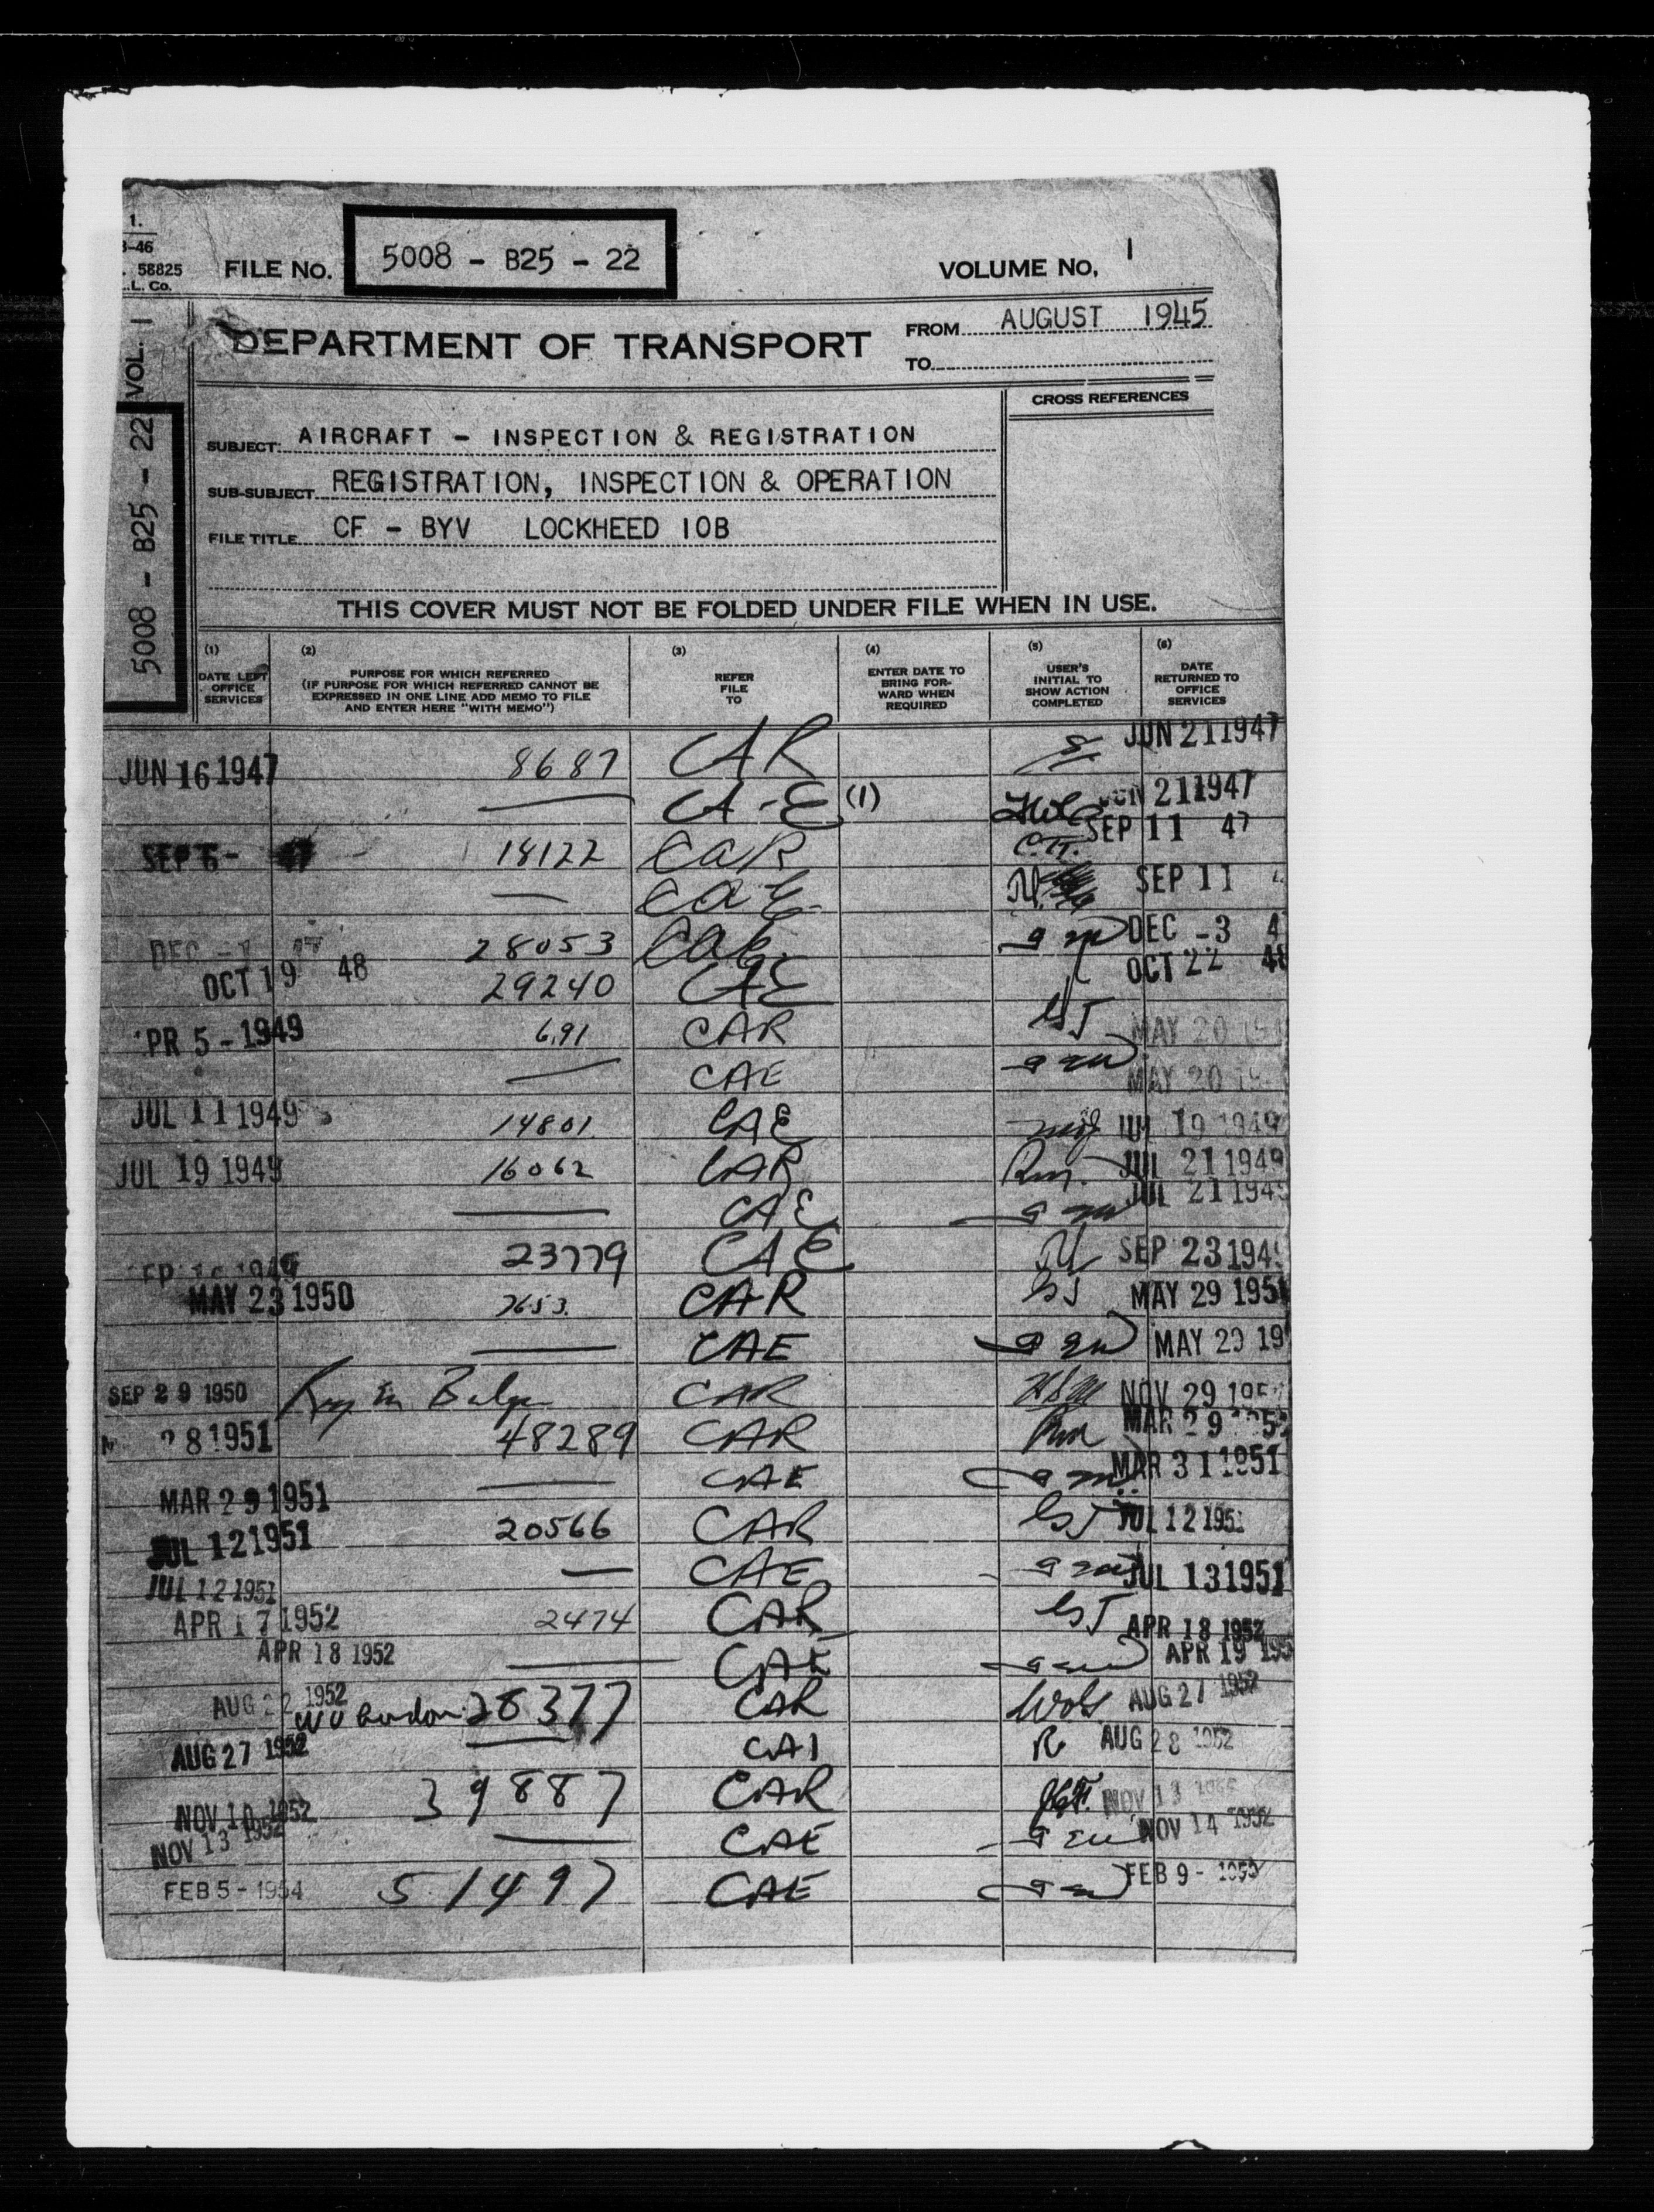 1.
3-46
. 58825
.L. Co.
FILE NO.
5008 - B25 - 22
VOLUME NO. 1
VOL. 1
5008 - B25 - 22
DEPARTMENT OF TRANSPORT
FROM AUGUST 1945
TO
CROSS REFERENCES
SUBJECT: AIRCRAFT - INSPECTION & REGISTRATION
SUB-SUBJECT REGISTRATION, INSPECTION & OPERATION
FILE TITLE CF - BYV LOCKHEED 10B
THIS COVER MUST NOT BE FOLDED UNDER FILE WHEN IN USE.
(1)
DATE LEFT
OFFICE
SERVICES
(2)
PURPOSE FOR WHICH REFERRED
(IF PURPOSE FOR WHICH REFERRED CANNOT BE
EXPRESSED IN ONE LINE ADD MEMO TO FILE
AND ENTER HERE "WITH MEMO")
(3)
REFER
FILE
TO
(4)
ENTER DATE TO
BRING FOR-
WARD WHEN
REQUIRED
(5)
USER'S
INITIAL TO
SHOW ACTION
COMPLETED
(6)
DATE
RETURNED TO
OFFICE
SERVICES
JUN 16 1947 8687 CAR JUN 21 1947
CA-E (1) JUN 21 1947
SEP 6 - 47 18122 CAR C.T. SEP 11 47
CAE SEP 11 4
DEC - 47 28053 CAE DEC -3 4
OCT 19 48 29240 CAE OCT 22 48
PR 5 - 1949 691 CAR MAY 20
CAE MAY 20
JUL 11 1949 14801 CAE JUL 19 1949
JUL 19 1949 16062 CAR JUL 21 1949
CAE JUL 21 1949
1949 23779 CAE SEP 23 194
MAY 23 1950 7653. CAR MAY 29 195
CAE MAY 29 19
SEP 29 1950 CAR NOV 29 195
28 1951 48289 CAR MAR 29
MAR 29 1951 CAE MAR 31 1951
JUL 12 1951 20566 CAR JUL 12 1951
JUL 12 1951 CAE JUL 13 1951
APR 17 1952 2474 CAR APR 18 1952
APR 18 1952 CAE APR 19 195
AUG 22 1952 28377 CAR AUG 27 1952
AUG 27 1952 CAI R AUG 28 1952
NOV 10 1952 39887 CAR NOV 13
NOV 13 1952 CAE NOV 14 1952
FEB 5 - 1954 51497 CAE FEB 9 -